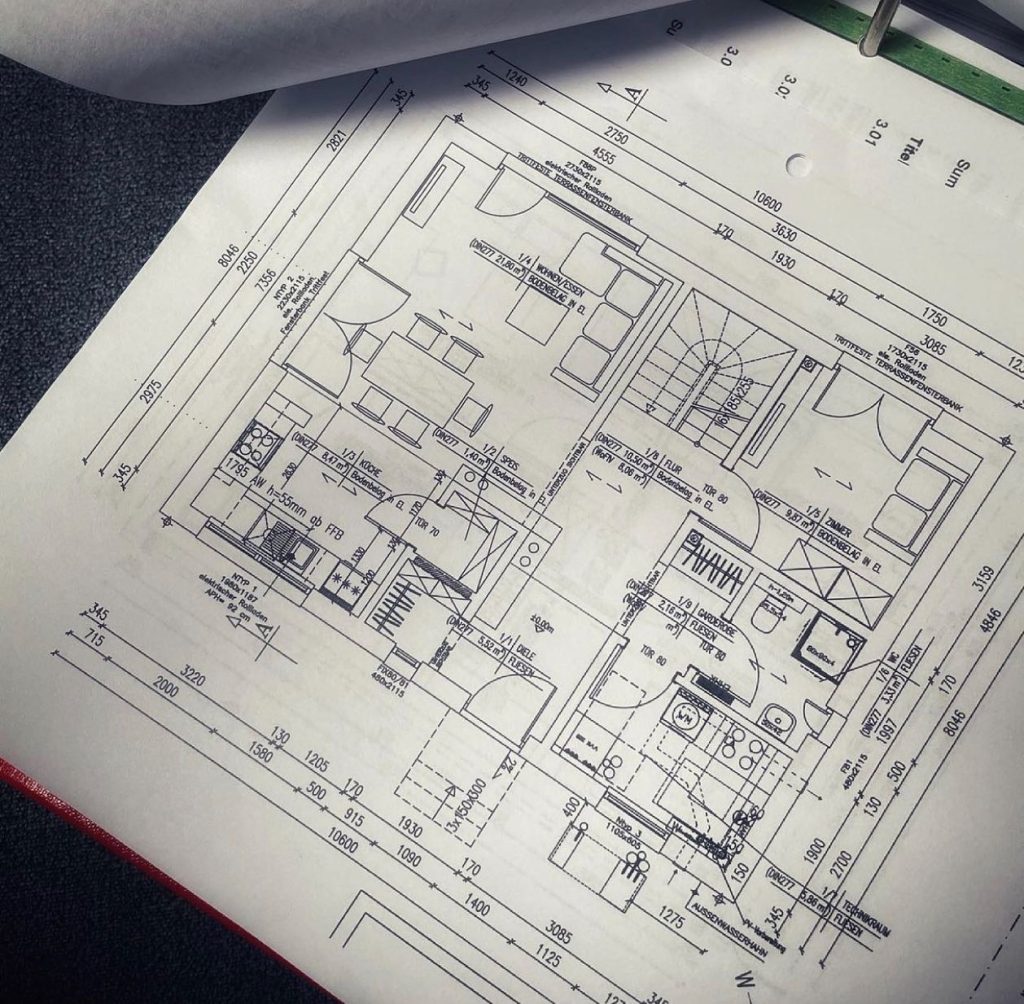 Su
3.0
3.0
3.01
Titel
Sum
1240
345
2750
4555
10600
3630
170
1930
170
1750
3085
345
2821
8046
2250
7356
2975
345
A
F86P
2730x2115
elektrischer Rollladen
TRITTFESTE TERRASSENFENSTERBANK
F56
1730x2115
ele. Rollladen
TRITTFESTE TERRASSENFENSTERBANK
NTYP 2
2230x2115
ele. Rollladen
Fensterbank Trittfest
1/4 WOHNEN/ESSEN
(DIN277 21,80 m²) BODENBELAG IN EL
16x185x255
1/3 KÜCHE
(DIN277 8,47 m²) Bodenbelag in EL
1/2 SPEIS
(DIN277 1,40 m²) Bodenbelag in EL
1/8 FLUR
(DIN277 10,50 m²) Bodenbelag in EL
(WoFlV 8,06 m²)
TÜR 80
1/5 ZIMMER
(DIN277 9,87 m²) BODENBELAG IN EL
1795 AW h=55mm ab FFB
TÜR 70
NTYP 1
1980x1187
elektrischer Rollladen
APH= 92 cm
A
FIX80/81
480x2115
1/1 DIELE
5,52 m² FLIESEN
±0.00m
1/9 GARDEROBE
2,18 m² FLIESEN
TÜR 80
TÜR 80
h=1,20m
1/6 WC
(DIN277 3,33 m²) FLIESEN
WN
3x150x300
NTYP 3
1105x605
400
1275
AUSSENWASSERHAHN
PV-Vorbereitung
150
150
1/7 TECHNIKRAUM
(DIN277 5,86 m²) FLIESEN
FB1
480x2115
3159
4846
170
8046
1997
500
130
1900
2700
345
345
715
3220
2000
130
1580
1205
500
170
915
10600
1930
1090
170
1400
3085
1125
345
W